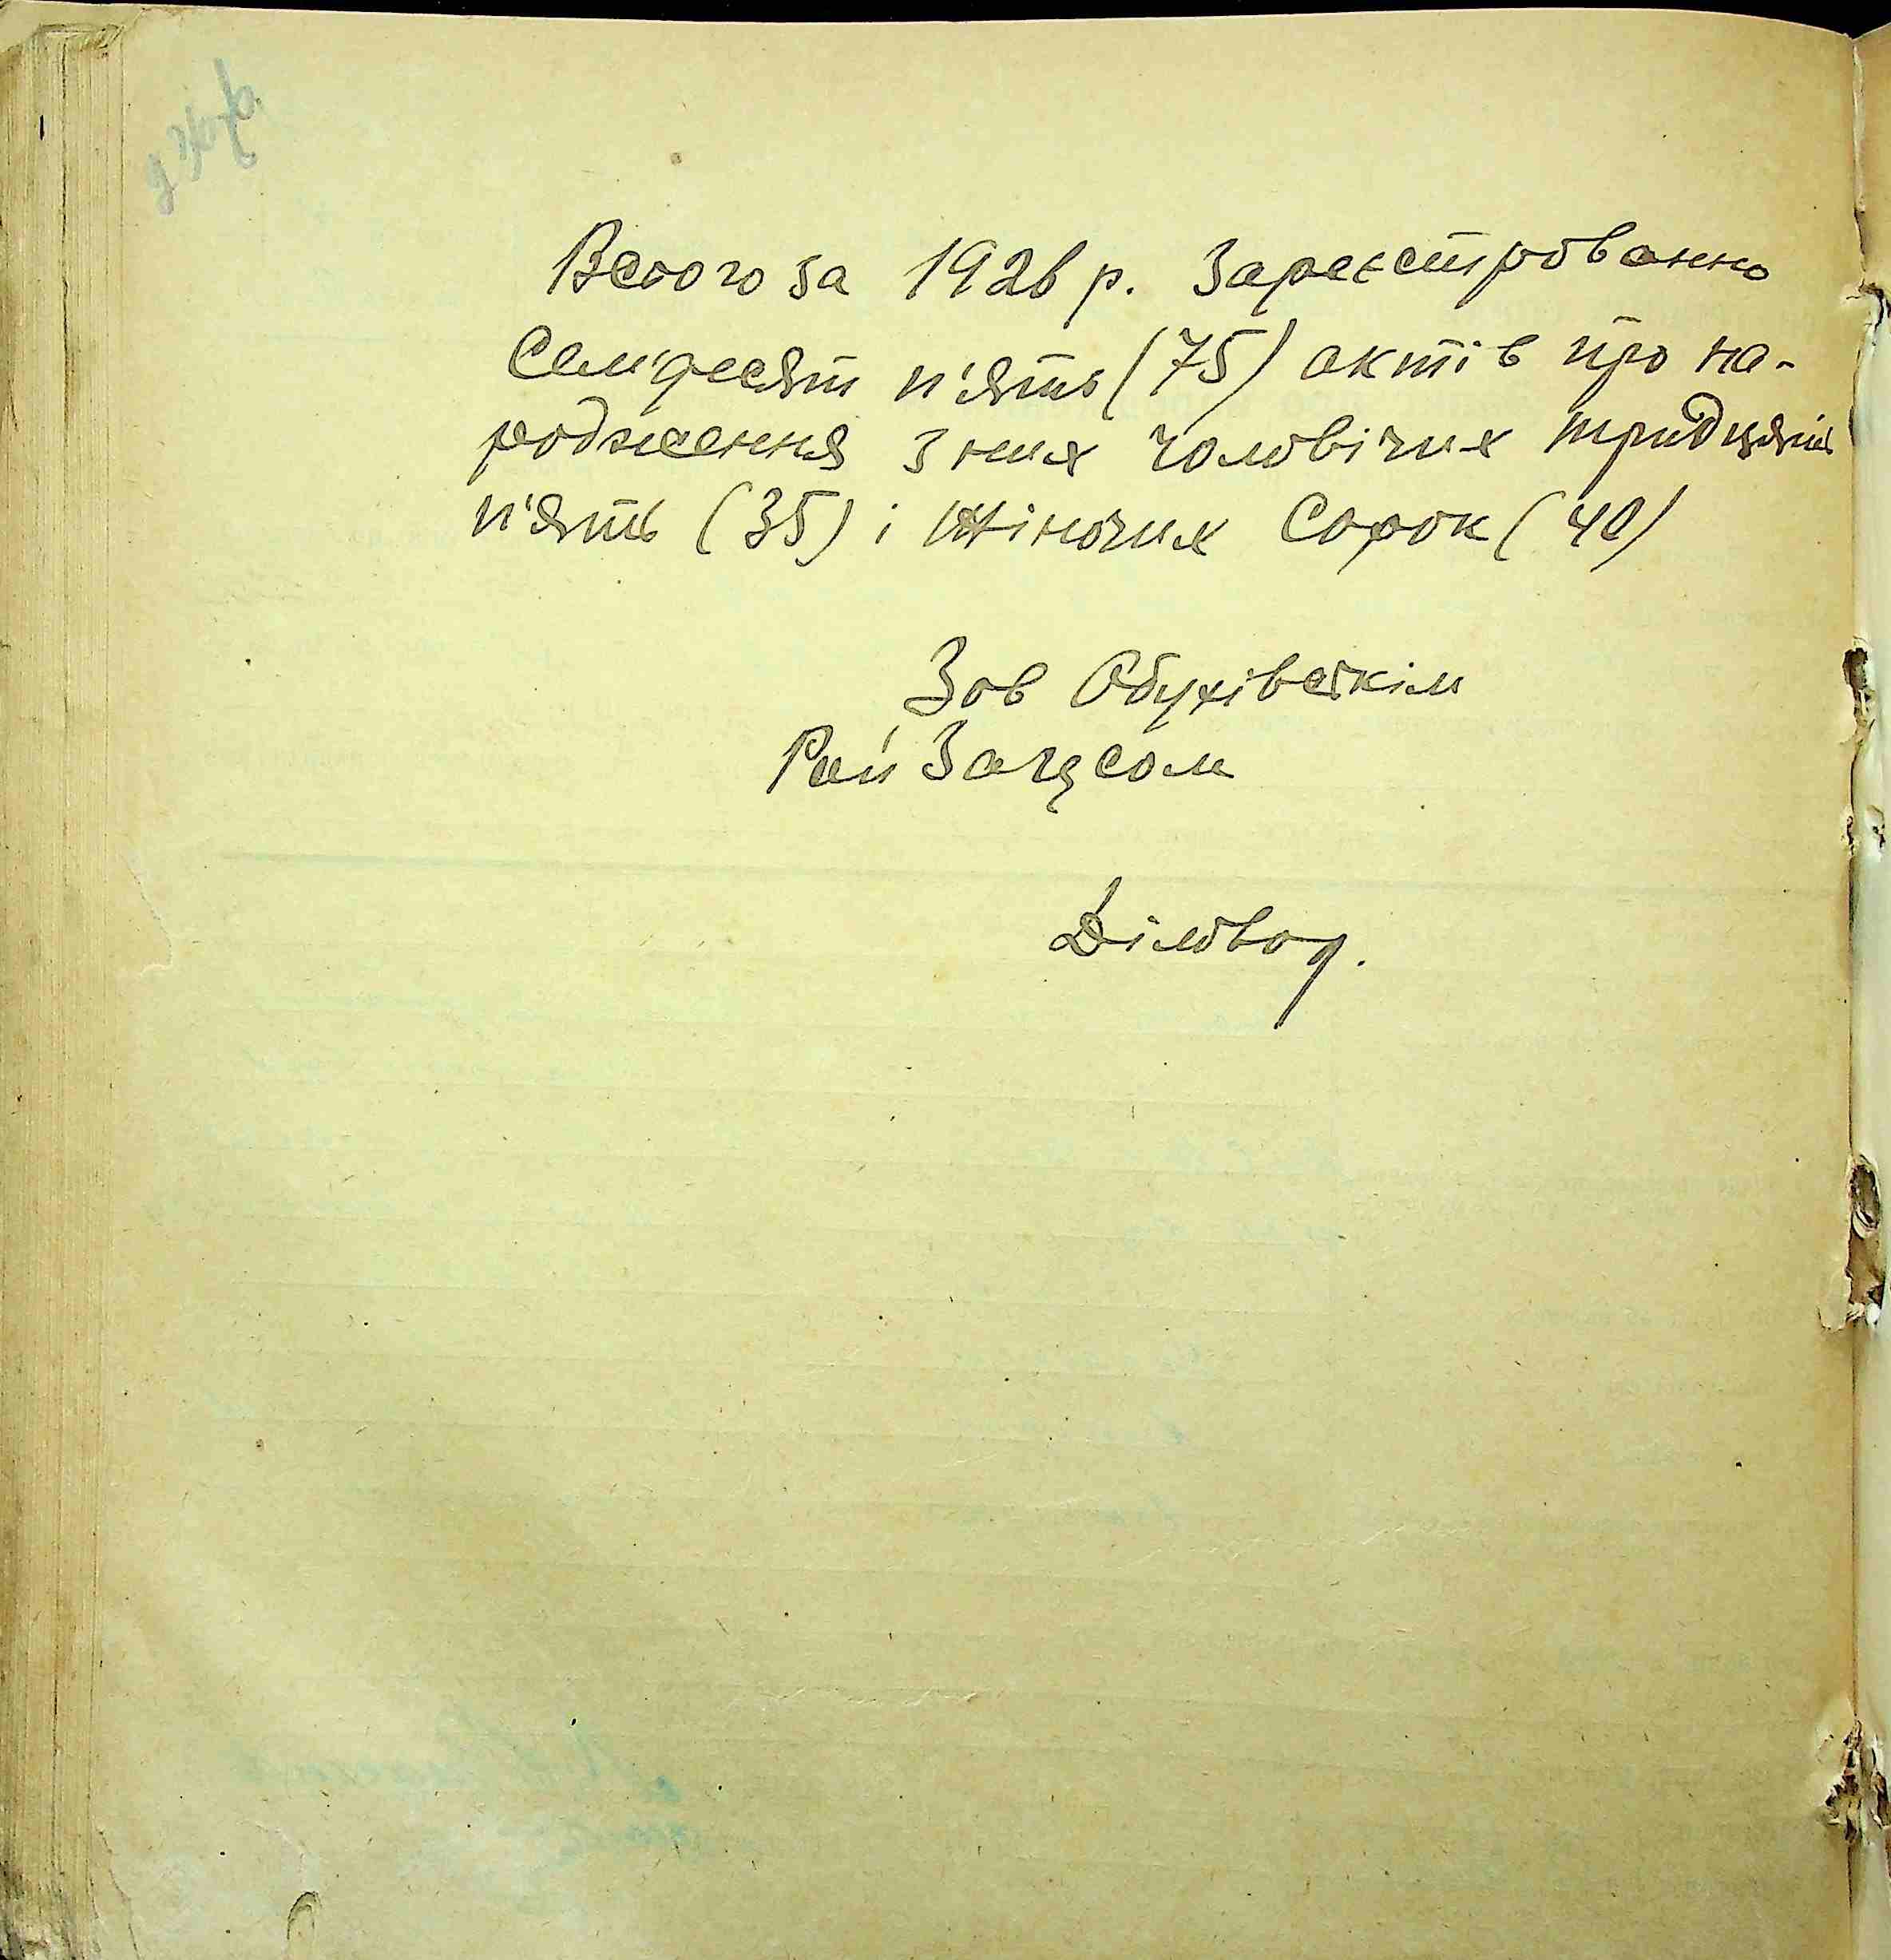 Всього за 1926 р. Зареєстрованно
Семдесят п'ять (75) актів про на-
родження з них чоловічих тридцять
п'ять (35) і жіночих Сорок (40)
Зав Обухівським
Рай Загсом
Діловод.